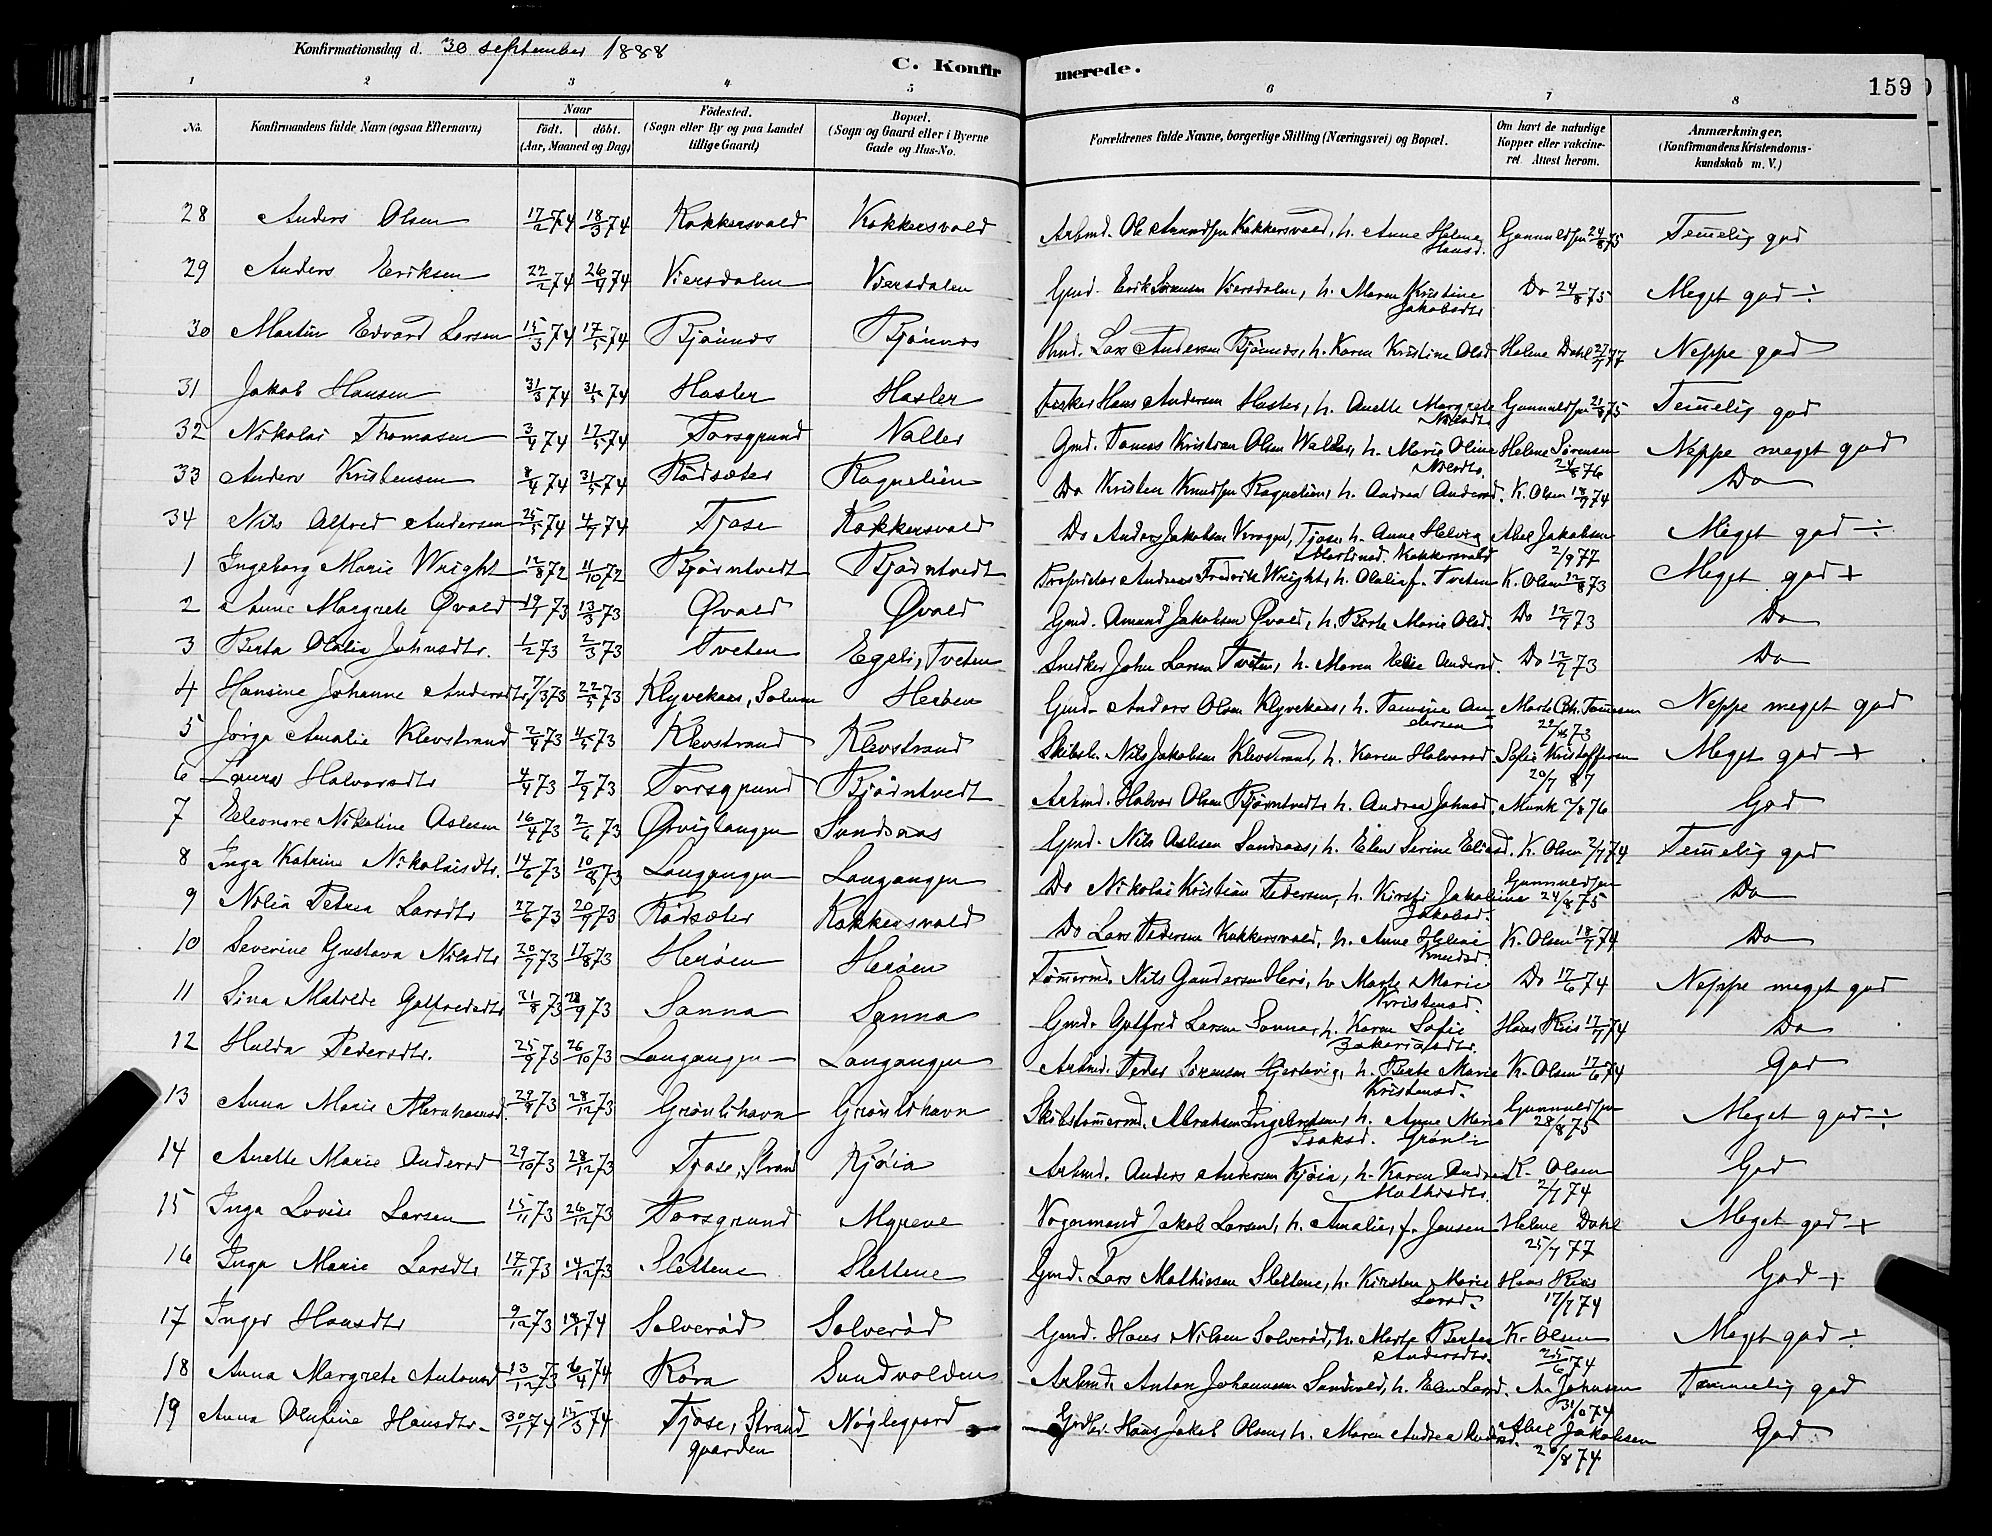 Konfirmationsdag d. 30 september 1888
C. Konfirmerede. 159
1 2 3 4 5 6 7 8
No. Konfirmandens fulde Navn (ogsaa Efternavn) Naar født. døbt. (Aar, Maaned og Dag) Födested. (Sogn eller By og paa Landet tillige Gaard) Bopæl. (Sogn og Gaard eller i Byerne Gade og Hus-No. Forældrenes fulde Navne, borgerlige Stilling (Næringsvei) og Bopæl. Om havt de naturlige Kopper eller vakcineret. Attest herom. Anmærkninger. (Konfirmandens Kristendomskundskab m. V.)
28 Anders Olsen 17/2 74 18/3 74 Kokkersvold Kokkersvold Arbmd. Ole Amundsen Kokkersvold, h. Anne Helene Hansd. Gunnuldsen 24/8 75 Temelig god
29 Anders Eriksen 22/2 74 26/4 74 Viersdalen Viersdalen Gmd. Erik Sørensen Viersdalen, h. Maren Kristine Jakobsdtr Do 24/8 75 Meget god ÷
30 Martin Edvard Larsen 15/3 74 17/5 74 Bjønnes Bjønnes Hmd. Lars Andersen Bjønnes, h. Karen Kristine Olsd. Helene Dahl 27/7 77 Neppe god
31 Jakob Hansen 31/3 74 31/5 74 Hasler Hasler Fisker Hans Andersen Hasler, h. Anette Margrete Nilsdtr Gunnuldsen 21/8 75 Temelig god
32 Nikolai Thomasen 3/4 74 17/5 74 Porsgrund Valler Gmd. Tomas Kristian Olsen Waller, h. Marie Oline Nilsdtr. Helene Sørensen 24/8 76 Neppe meget god
33 Anders Kristensen 8/4 74 31/5 74 Rødsæter Rognelien Do Kristen Knudsen Rognelien, h. Andrea Andersd. K. Olsen 18/7 74 Do
34 Nils Alfred Andersen 25/5 74 4/7 74 Tjose Kokkersvold Do Anders Jakobsen Krogen, Tjose, h. Anne Helvig Kokkersvold Abel Jakobsen 2/9 77 Meget god ÷
1 Ingeborg Marie Wright 12/8 72 11/10 72 Bjørntvedt Bjørntvedt Proprietær Andreas Fredrik Wright, h. Olalia f. Tveten K. Olsen 12/8 73 Meget god +
2 Anne Margrete Øvald 19/1 73 13/3 73 Øvald Øvald Gmd. Amund Jakobsen Øvald, h. Berte Marie Olsd. Do 12/7 73 Do
3 Berta Olalia Johnsdtr. 1/2 73 2/3 73 Tveten Egeli, Tveten Snedker John Larsen Tveten, h. Maren Elise Andersd. Do 12/7 73 Do
4 Hansine Johanne Andersdtr 7/3 73 22/5 73 Klyvekaas, Solum Herøen Gmd. Anders Olsen Klyvekaas, h. Tomine Andersen Marte Tomesen 22/ 73 Neppe meget god
5 Jørga Amalie Klevstrand 2/4 73 4/5 73 Klevstrand Klevstrand Skibsk. Nils Jakobsen Klevstrand, h. Karen Halvorsd. Sofie Kristoffersen 20/7 87 Meget god +
6 Laura Halvorsdtr 4/4 73 7/9 73 Porsgrund Bjørntvedt Arbmd. Halvor Olsen Bjørntvedt, h. Andrea Johnsd. Munk 2/8 76 God
7 Eleonore Nikoline Aslesen 16/4 73 2/6 73 Ørviglangen Sundsaas Gmd. Nils Aslesen Sundsaas, h. Elen Serine Eliasd. K. Olsen 2/7 74 Temelig god
8 Inga Katrine Nikolaisdtr. 14/6 73 10/8 73 Langangen Langangen Do Nikolai Kristian Pedersen, h. Kirsti Jakobine Jakobsd. Gunnuldsen 24/8 75 Do
9 Nilia Petrea Larsdtr 27/6 73 20/9 73 Rødsæter Kokkersvold Do Lars Pedersen Kokkersvold, h. Anne Helene Knudsd. K. Olsen 18/7 74 Do
10 Severine Gustava Nilsdtr 20/7 73 17/8 73 Herøen Herøen Tømermd. Nils Gundersen Herø, h. Marte Marie Kristensd. Do 17/6 74 Neppe meget god
11 Lina Matilde Gotfredsdtr 31/8 73 28/9 73 Sanna Sanna Gmd. Gotfred Larsen Sanna, h. Karen Sofie Zakariasdtr. Hans Riis 17/7 74 Do
12 Hulda Pedersdtr. 25/9 73 26/10 73 Langangen Langangen Arbmd. Peder Sørensen Hjertevig, h. Berte Marie Kristensd. K. Olsen 17/6 74 God
13 Anna Marie Abrahamsd. 29/9 73 28/12 73 Grønlihavn Grønlihavn Skibstømermd. Abraham Ingebretsen, h. Anne Maria Isaksd. Grønli Gunnuldsen 28/8 75 Meget god ÷
14 Anette Marie Andersd 29/10 73 28/12 73 Tjose, Strand Kjøia Arbmd. Anders Andersen Kjøia, h. Karen Andrea Mathisdtr. K. Olsen 2/7 74 God
15 Inga Lovise Larsen 15/11 73 26/12 73 Porsgrund Myrene Vognmand Jakob Larsen, h. Amalie, f. Jensen Helene Dahl 25/7 77 Meget god +
16 Inga Marie Larsdtr 17/11 73 14/12 73 Slettene Slettene Gmd. Lars Mathisen Slettene, h. Kirsten Marie Larsd. Hans Riis 17/7 74 God +
17 Inger Hansdtr 9/12 73 18/1 74 Solverød Solverød Gmd. Hans Nilsen Solverød, h. Marte Birtea Andersdtr. K. Olsen 25/6 74 Meget god ÷
18 Anna Margrete Antonsd 13/12 73 6/4 74 Røra Sundvolden Arbmd. Anton Johannesen Sundvold, h. Elen Larsd. A. Johnsen 31/ 74 Temmelig god
19 Anna Olufine Hansdtr. 30/1 74 15/3 74 Tjose, Strandgaarden Nøglegaard Gjedbr. Hans Jakob Olsen, h. Maren Andrea Andersd. Abel Jakobsen 20/8 74 God